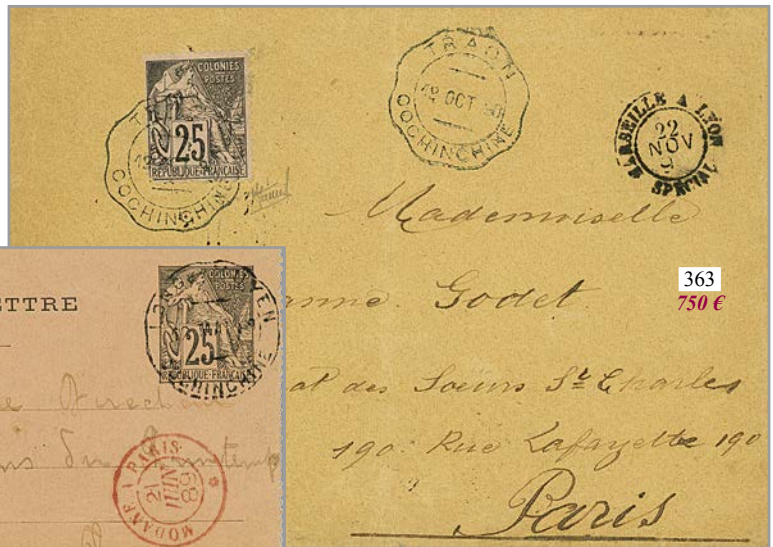 COLONIES
POSTES
25
REPUBLIQUE FRANÇAISE
TRAON
12 OCT 90
COCHINCHINE
MARSEILLE A LYON
22
NOV
SPECIAL
Mademoiselle
Godet
363
750 €
des Soeurs St Charles
190 Rue Lafayette 190
Paris
TTRE
COLONIES
POSTES
25
REPUBLIQUE FRANÇAISE
COCHINCHINE
MODANE A PARIS
21
JUIN
89